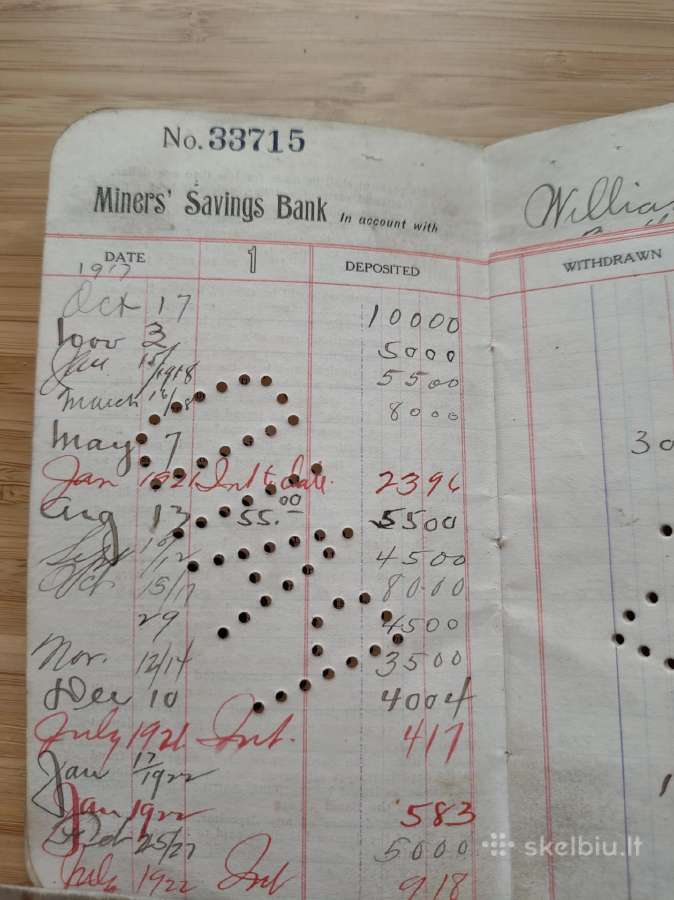 No. 33715
Miners' Savings Bank In account with
Willia
DATE 1 DEPOSITED WITHDRAWN
1917
Oct 17 10000
Nov 3 5000
Jan 15/1918 5500
March 16/18 8000
May 7 30
Jan 1921 Int to date 2396
Aug 13 55.00 5500
Sept 10/12 4500
Oct 15/17 8000
29 4500
Nov. 12/14 3500
Dec 10 4004
July 1921 Int. 417
Jan 17/1922
Jan 1922 583
25/27 5000
July 1922 Int 918
skelbiu.lt